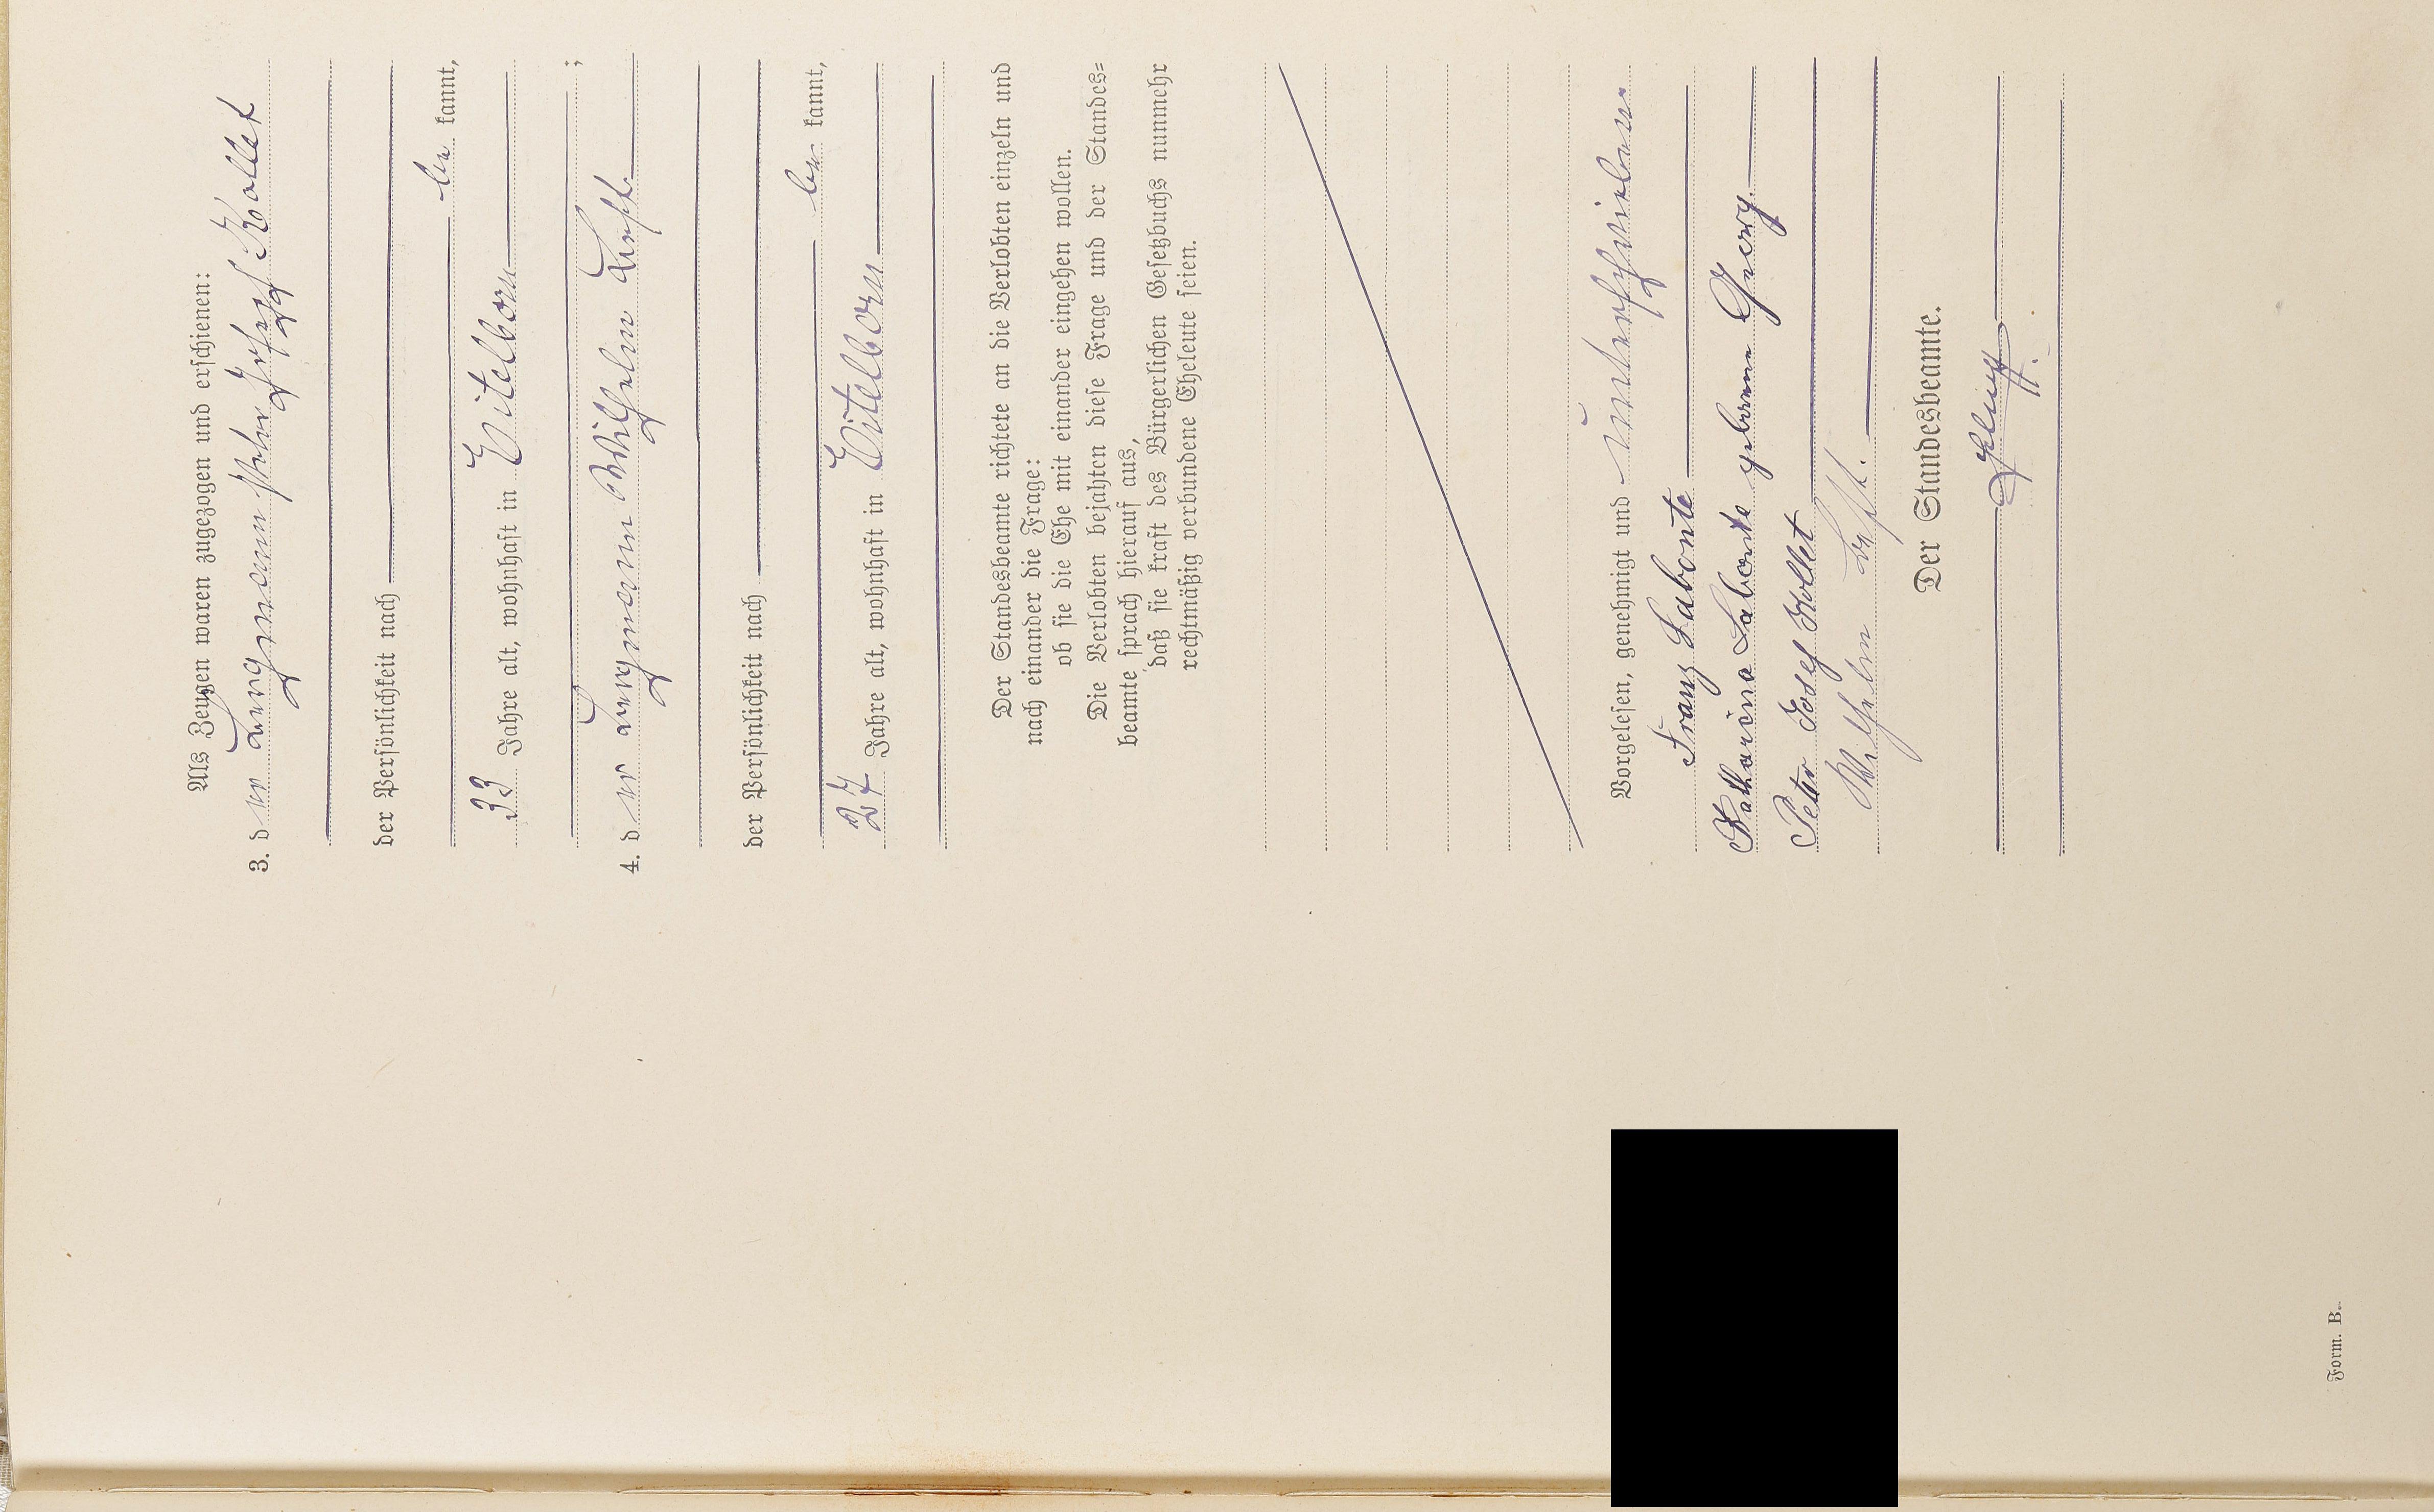 Als Zeugen waren zugezogen und erschienen:
3. der Bergmann Peter Josef Kollet
der Persönlichkeit nach
be kannt,
33 Jahre alt, wohnhaft in Eitelborn
;
4. der Bergmann Wilhelm Best
der Persönlichkeit nach
be kannt,
27 Jahre alt, wohnhaft in Eitelborn
Der Standesbeamte richtete an die Verlobten einzeln und
nach einander die Frage:
ob sie die Ehe mit einander eingehen wollen.
Die Verlobten bejahten diese Frage und der Standes=
beamte sprach hierauf aus,
daß sie kraft des Bürgerlichen Gesetzbuchs nunmehr
rechtmäßig verbundene Eheleute seien.
Vorgelesen, genehmigt und unterschrieben.
Franz Labonte
Katharina Labonte geborene Georg.
Peter Josef Kollet
Wilhelm Best.
Der Standesbeamte.
Form. B.